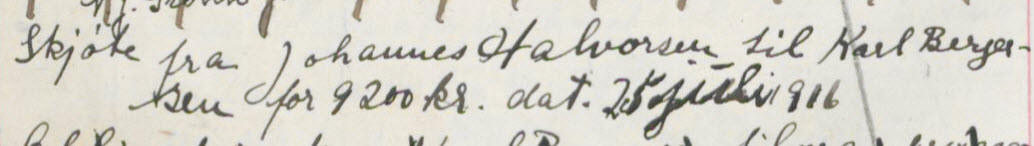 Skjøte fra Johannes Halvorsen til Karl Berger-
sen for 9200 kr. dat. 25 juli 1916